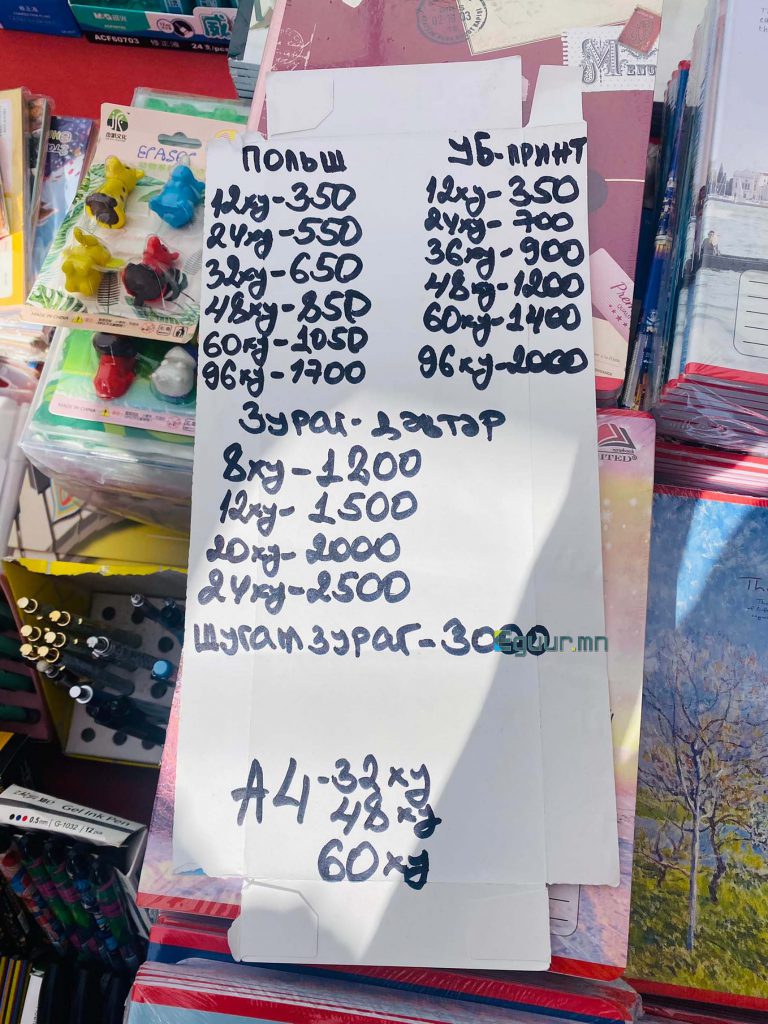 M&G
ACF60703 修正液 24支/pcs
MENU
ERASER
ПОЛЬШ
12ху-350
24ху-550
32ху-650
48ху-850
60ху-1050
96ху-1700
УБ-ПРИНТ
12ху-350
24ху-700
36ху-900
48ху-1200
60ху-1400
96ху-2000
Зураг-дэвтэр
8ху-1200
12ху-1500
20ху-2000
24ху-2500
Шугам зураг-3000
Eguur.mn
А4-32ху
48ху
60ху
MADE IN CHINA
MADE IN CHINA
Gel Ink Pen
0.5mm G-1032 / 12pcs